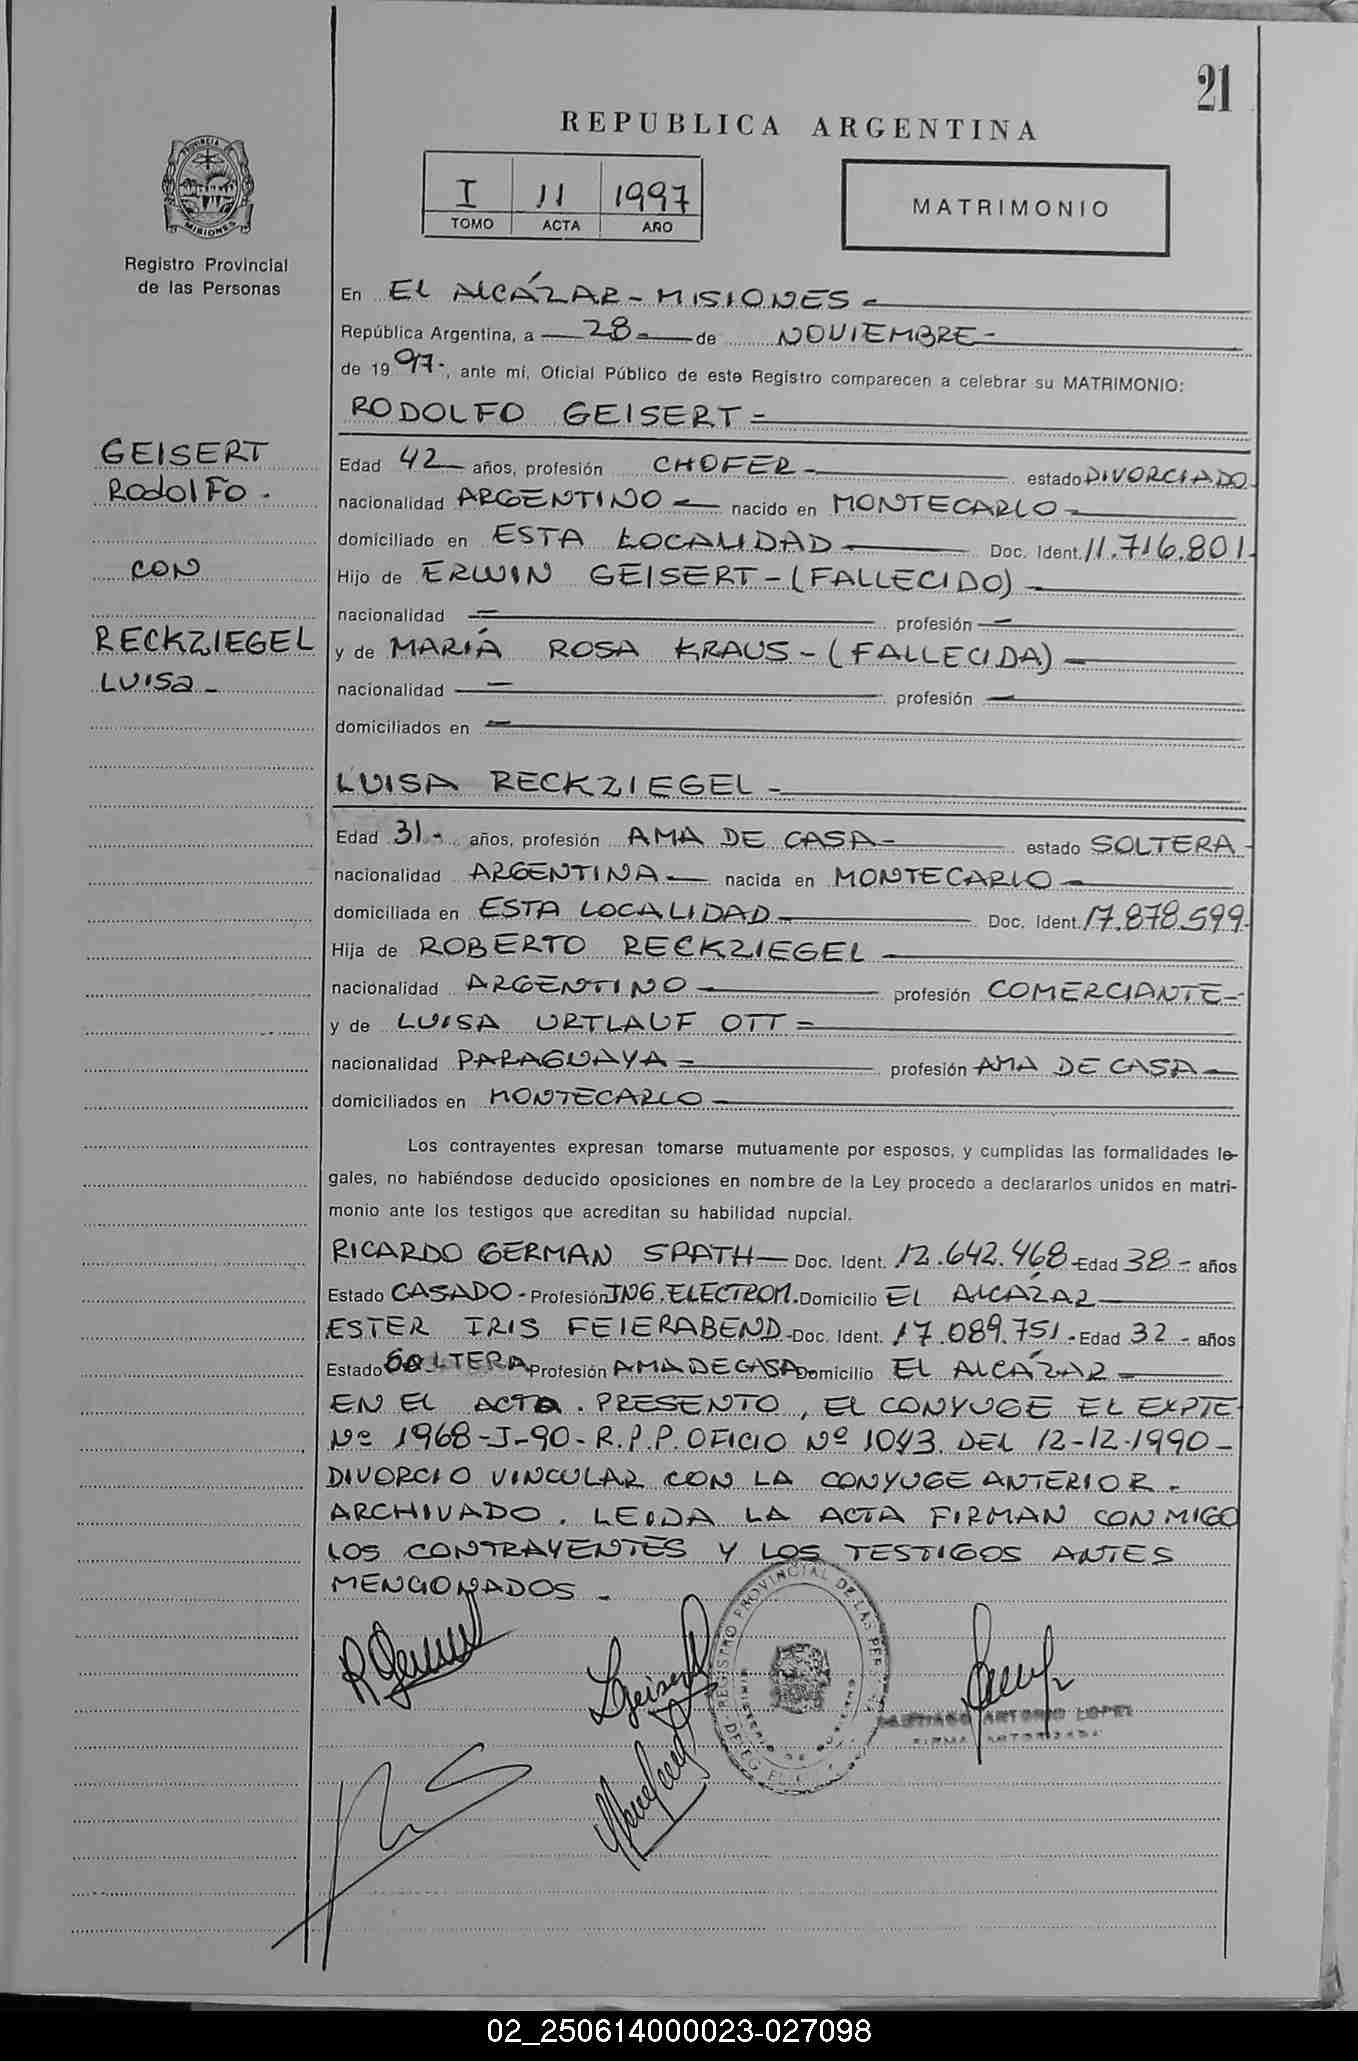 21
REPUBLICA ARGENTINA
I 11 1997
TOMO ACTA AÑO
MATRIMONIO
PROVINCIA
MISIONES
Registro Provincial
de las Personas
En EL ALCÁZAR - MISIONES -
República Argentina, a - 28 - de NOVIEMBRE -
de 1997-, ante mí, Oficial Público de este Registro comparecen a celebrar su MATRIMONIO:
RODOLFO GEISERT =
GEISERT
RodolFo -
CON
RECKZIEGEL
LUISa -
Edad 42 - años, profesión CHOFER - estado DIVORCIADO
nacionalidad ARGENTINO - nacido en MONTECARLO -
domiciliado en ESTA LOCALIDAD - Doc. Ident. 11.716.801-
Hijo de ERWIN GEISERT - (FALLECIDO) -
nacionalidad = profesión -
y de MARIÁ ROSA KRAUS - (FALLECIDA) -
nacionalidad - profesión -
domiciliados en -
LUISA RECKZIEGEL -
Edad 31 - años, profesión AMA DE CASA - estado SOLTERA -
nacionalidad ARGENTINA - nacida en MONTECARLO -
domiciliada en ESTA LOCALIDAD - Doc. Ident. 17.878.599-
Hija de ROBERTO RECKZIEGEL -
nacionalidad ARGENTINO - profesión COMERCIANTE -
y de LUISA URTLAUF OTT =
nacionalidad PARAGUAYA = profesión AMA DE CASA -
domiciliados en MONTECARLO -
Los contrayentes expresan tomarse mutuamente por esposos, y cumplidas las formalidades le-
gales, no habiéndose deducido oposiciones en nombre de la Ley procedo a declararlos unidos en matri-
monio ante los testigos que acreditan su habilidad nupcial.
RICARDO GERMAN SPATH - Doc. Ident. 12.642.468 - Edad 38 - años
Estado CASADO - Profesión ING. ELECTROM. Domicilio EL ALCÁZAR -
ESTER IRIS FEIERABEND - Doc. Ident. 17.089.751 - Edad 32 - años
Estado SOLTERA Profesión AMA DE CASA Domicilio EL ALCÁZAR -
EN EL ACTO. PRESENTO, EL CONYUGE EL EXPTE
Nº 1968-J-90- R.P.P. OFICIO Nº 1043. DEL 12-12-1990 -
DIVORCIO VINCULAR CON LA CONYUGE ANTERIOR -
ARCHIVADO. LEIDA LA ACTA FIRMAN CONMIGO
LOS CONTRAYENTES Y LOS TESTIGOS ANTES
MENCIONADOS -
REGISTRO PROVINCIAL DE LAS PER
SANTIAGO ANTONIO LOPEZ
FIRMA AUTORIZADA
02_250614000023-027098